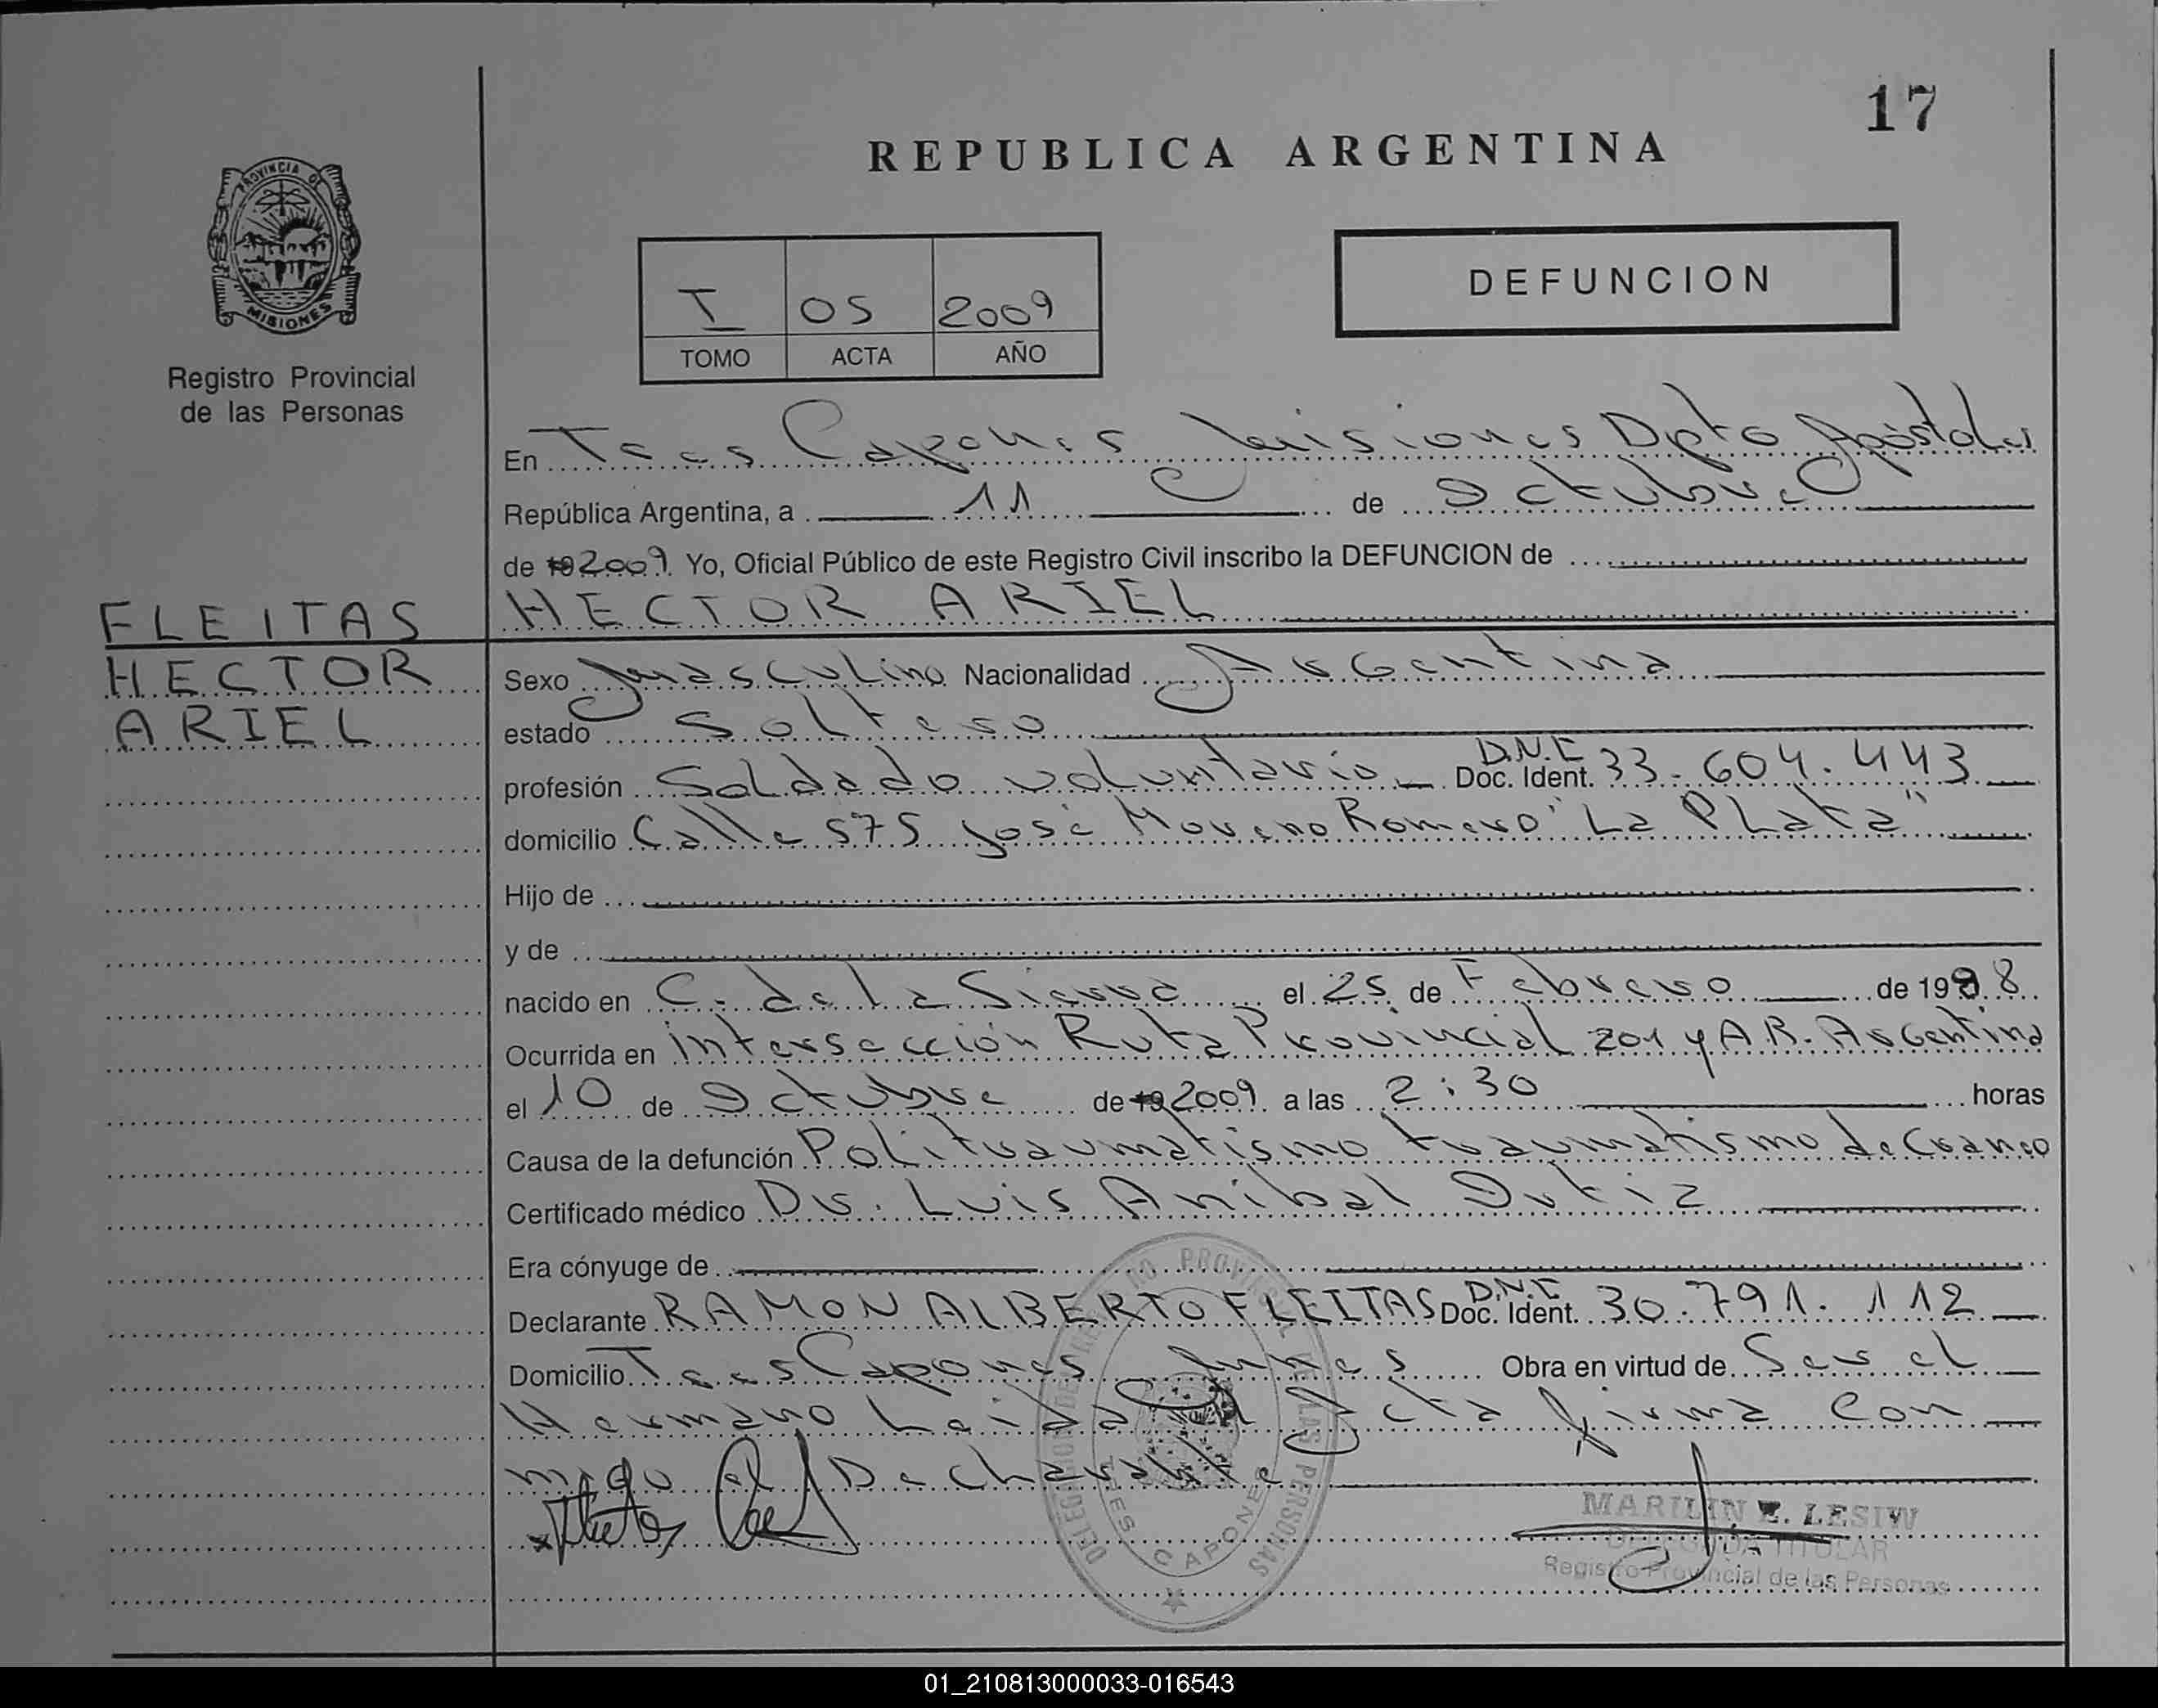 17
REPUBLICA ARGENTINA
PROVINCIA DE
MISIONES
Registro Provincial
de las Personas
I 05 2009
TOMO ACTA AÑO
DEFUNCION
En Tres Capones Misiones Dpto Apóstoles
República Argentina, a 11 de Octubre
de 19 2009 Yo, Oficial Público de este Registro Civil inscribo la DEFUNCION de
FLEITAS
HECTOR
ARIEL
HECTOR ARIEL
Sexo Masculino Nacionalidad Argentina
estado Soltero
profesión Soldado voluntario D.N.I Doc. Ident. 33.604.443
domicilio Calle 575 José Moreno Romero "La Plata"
Hijo de
y de
nacido en C. de la Sierra el 25 de Febrero de 1988
Ocurrida en Intersección Ruta Provincial 201 y A.R. Argentina
el 10 de Octubre de 19 2009 a las 2:30 horas
Causa de la defunción Politraumatismo traumatismo de Craneo
Certificado médico Dr. Luis Anibal Ortiz
Era cónyuge de
Declarante RAMON ALBERTO FLEITAS D.N.I Doc. Ident. 30.791.112
Domicilio Tres Capones Mnes Obra en virtud de Ser el
Hermano Leida el Acta firma con
migo el Declarante
MARILIN E. LESIW
DELEGADA TITULAR
Registro Provincial de las Personas
DELEGACION DEL REGISTRO PROVINCIAL DE LAS PERSONAS
TRES CAPONES
01_210813000033-016543